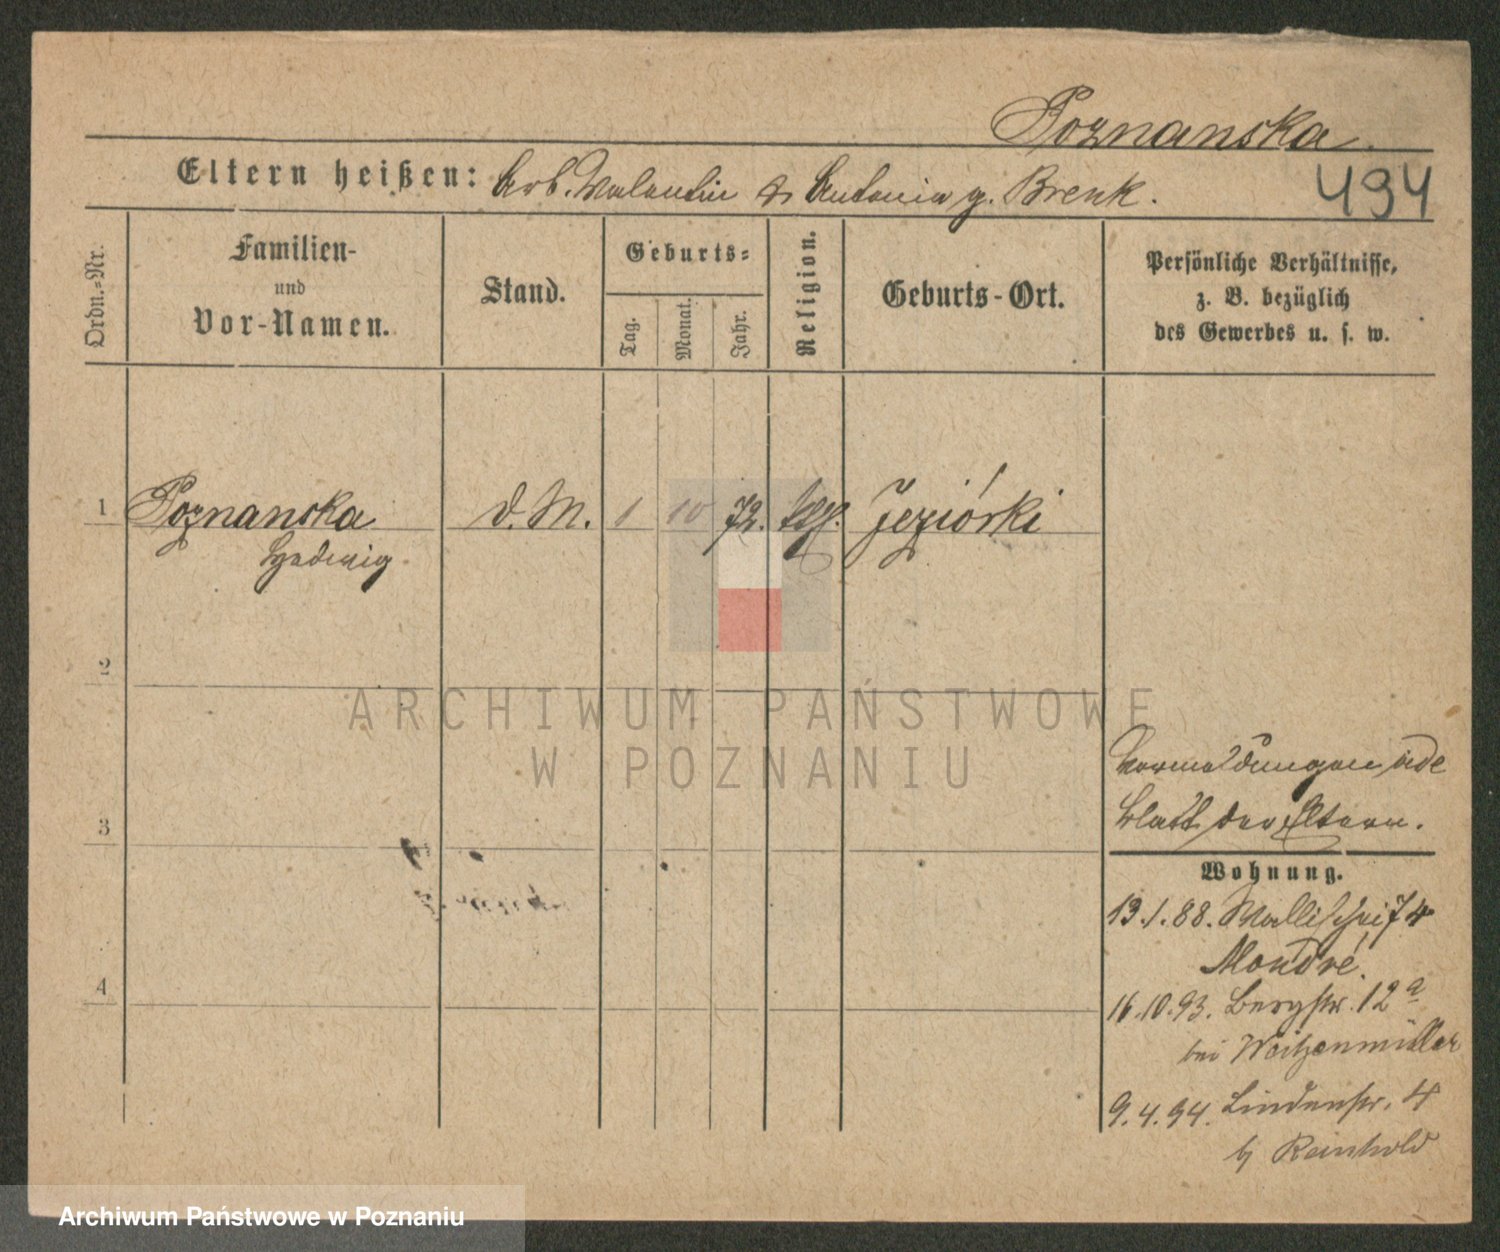 Poznanska.
494
Eltern heißen: Arb. Valentin & Antonia g. Brenk.
Ordn.=Nr.
Familien-
und
Vor-Namen.
Stand.
Geburts=
Tag.
Monat.
Jahr.
Religion.
Geburts-Ort.
Persönliche Verhältnisse,
z. B. bezüglich
des Gewerbes u. s. w.
1 Poznanska d. M. 1 10 72. Jeziórki
Hedwig
2
ARCHIWUM PAŃSTWOWE
W POZNANIU
Vormeldungen
3 Blatt der Eltern.
Wohnung.
13.1.88. Wallischei 74
Mondré.
4
16.10.93. Bergstr. 12a
bei Weitzenmüller
9.4.94. Lindenstr. 4
b/ Reinhold
Archiwum Państwowe w Poznaniu